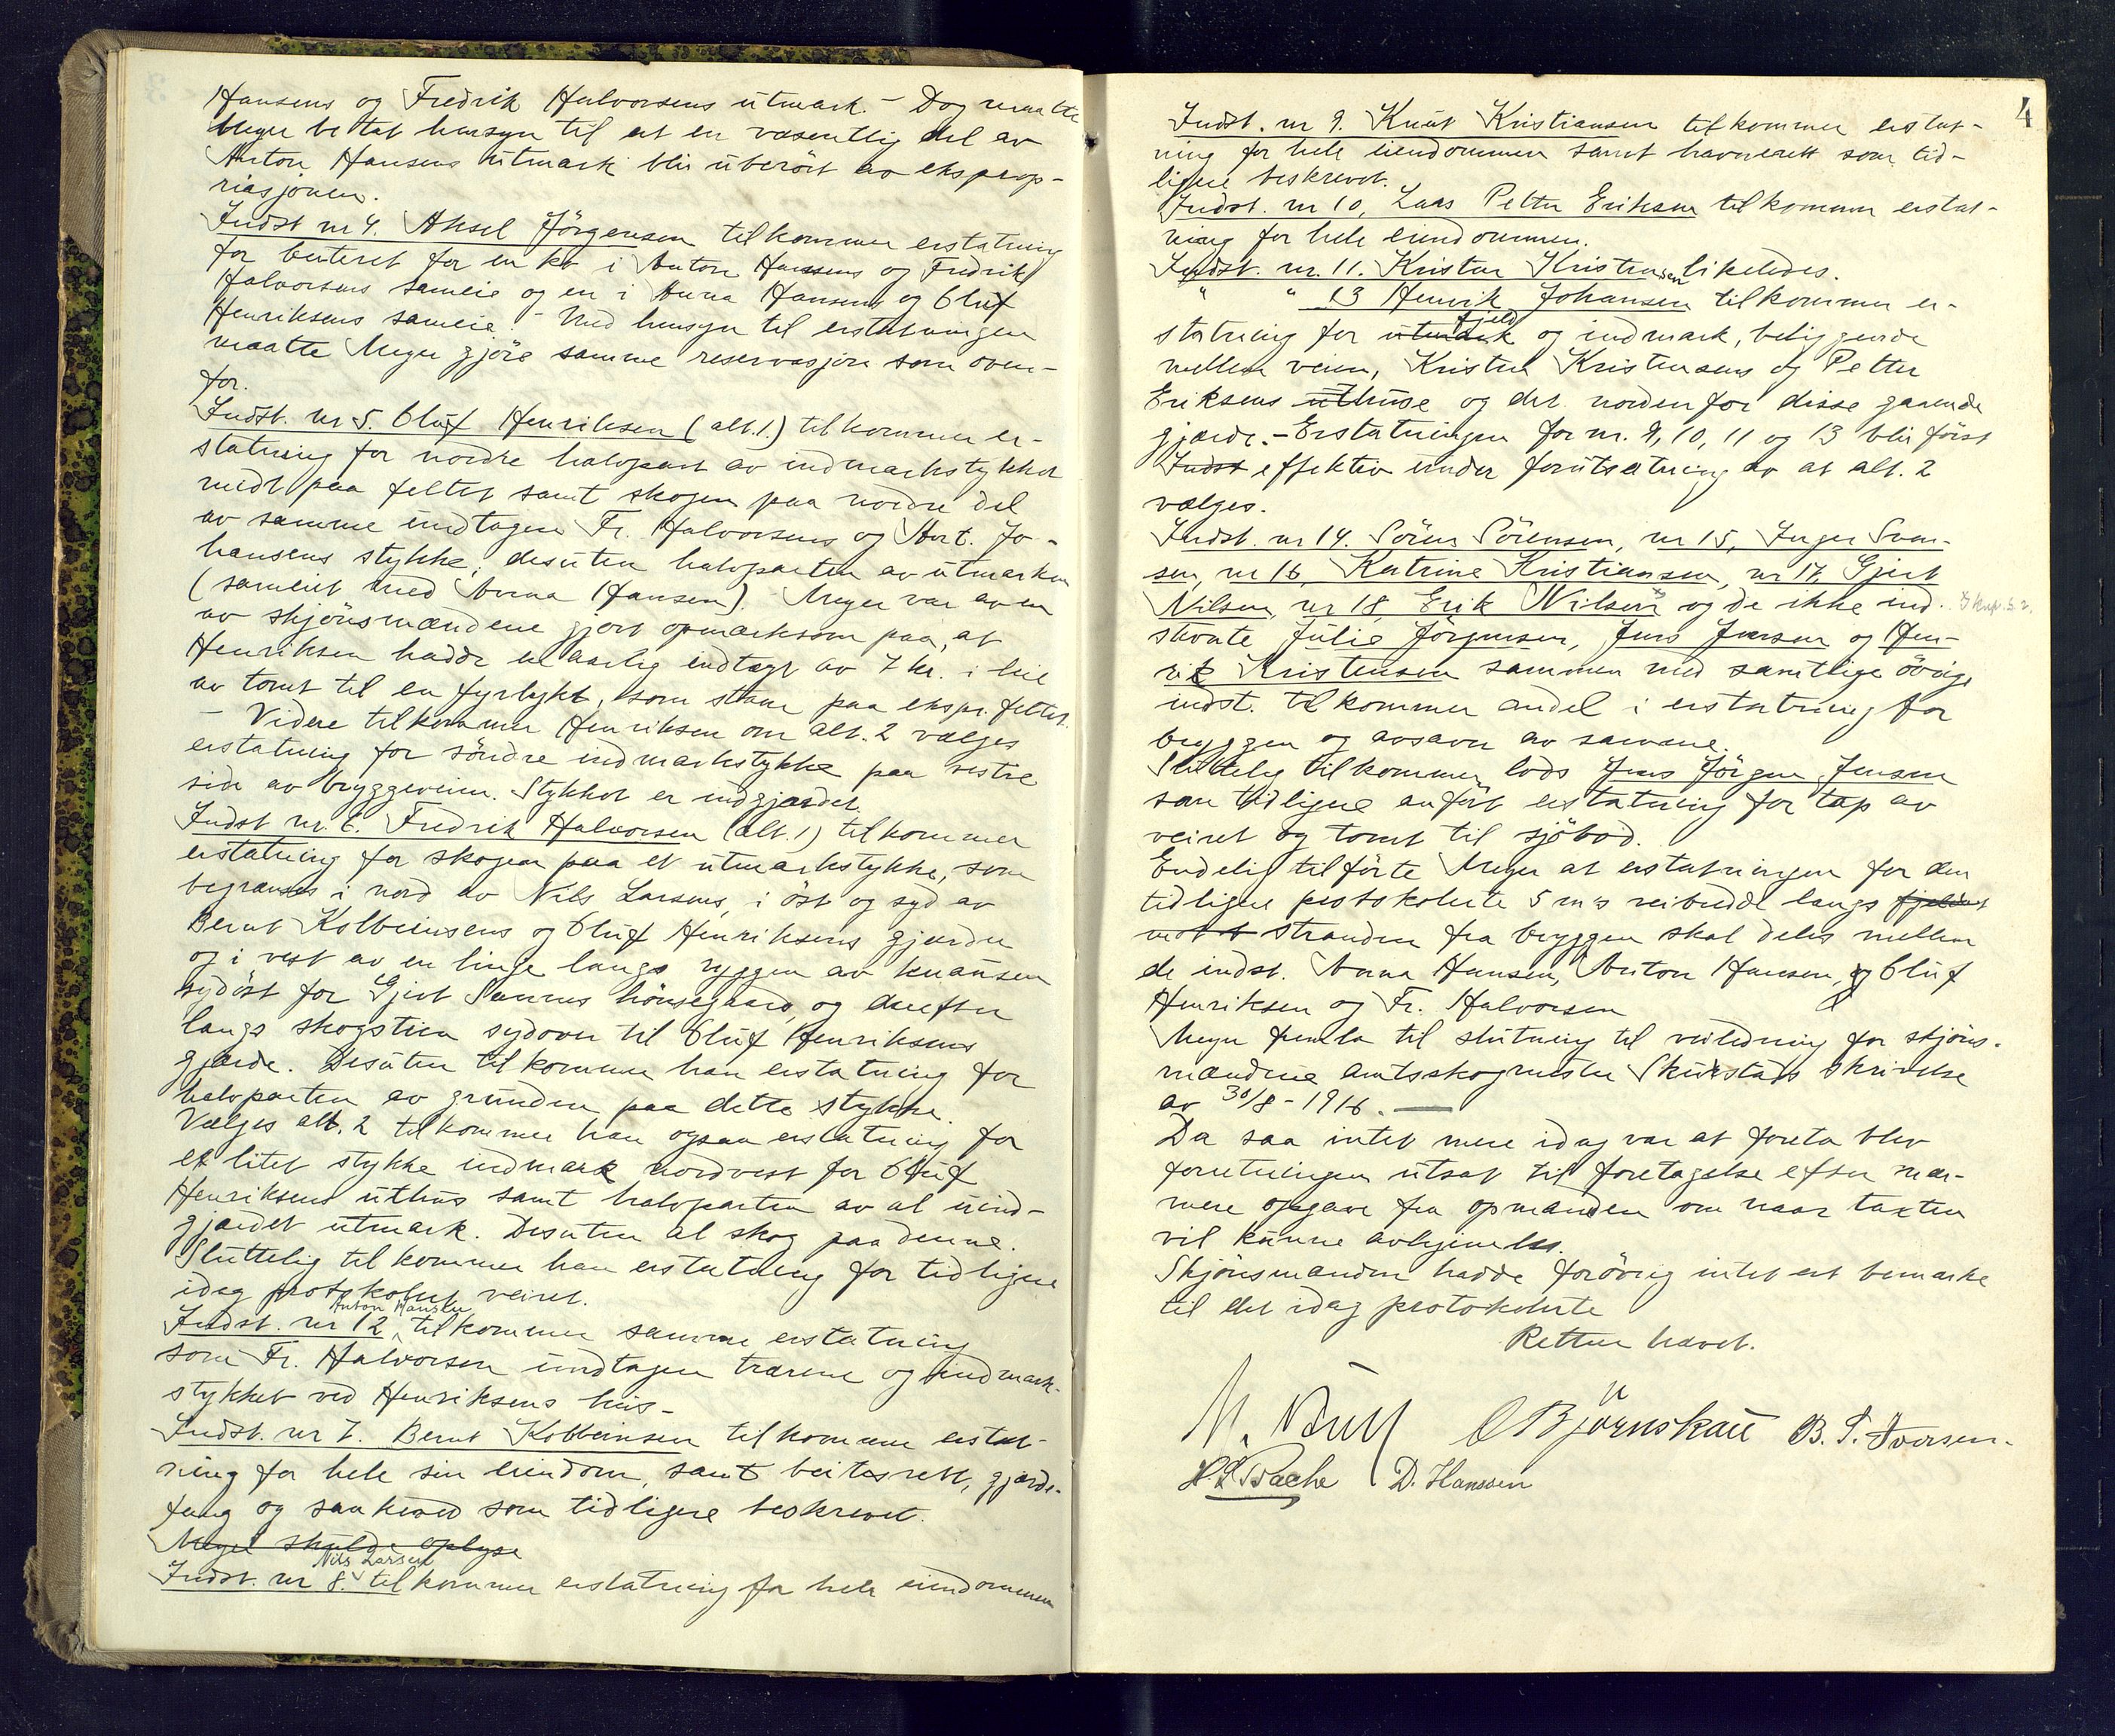 Hansens og Fredrik Halvorsens utmark. – Dog maatte
Meyer be tat hensyn til at en væsentlig del av
Anton Hansens utmark blir uberört av eksprop-
riasjonen.
Indst nr 4. Aksel Jörgensen tilkommer erstatning
for beiteret for en ko i Anton Hansens og Fredrik
Halvorsens sameie og en i Anna Hansens og Oluf
Henriksens sameie. – Med hensyn til erstatningen
maatte Meyer gjöre samme reservasjon som oven-
for.
Indst. nr 5. Oluf Henriksen (alt. 1.) tilkommer er-
statning for nordre halvpart av indmarkstykket
midt paa feltet samt skogen paa nordre del
av samme undtagen Fr. Halvorsens og Jo-
hansens stykke, desuten halvparten av utmarken
(sameiet med Anna Hansen). Meyer var av en
av skjönsmændene gjort opmærksom paa, at
Henriksen hadde en aarlig indtægt av 7 kr. i leie
av tomt til en fyrlykt, som staar paa ekspr. feltet.
– Videre tilkommer Henriksen om alt. 2 vælges
erstatning for söndre indmarkstykke paa vestre
side av bryggeveien. Stykket er indgjærdet.
Indst nr. 6. Fredrik Halvorsen (alt. 1) tilkommer
erstatning for skogen paa et utmarkstykke, som
begrænses i nord av Nils Larsens, i öst og syd av
Bernt Kolbeinsens og Oluf Henriksens gjærder
og i vest av en linje langs ryggen av knausen
sydöst for Gjert hönsegaard, og derefter
langs skogstien sydover til Oluf Henriksens
gjærde. Desuten tilkommer han erstatning for
halvparten av grunden paa dette stykke.
Vælges alt. 2 tilkommer han ogsaa erstatning for
et litet stykke indmark nordvest for Oluf
Henriksens uthus samt halvparten av al uind-
gjærdet utmark. Desuten al skog paa denne.
Sluttelig tilkommer han erstatning for tidligere
idag protokolert veiret.
Anton Hansen
Indst. nr 12, tilkommer samme erstatning
som Fr. Halvorsen undtagen trærne og indmark-
stykket ved Henriksens hus. –
Indst. nr 7. Bernt Kolbeinsen tilkommer erstat-
ning for hele sin eiendom, samt beitesrett, gjærde-
fang og sankeved som tidligere beskrevet.
Meyer skulde oplyse
Nils Larsen
Indst. nr 8. tilkommer erstatning for hele eiendommen
4
Indst. nr 9. Knut Kristiansen tilkommer erstat-
ning for hele eiendommen samt havnerett som tid-
ligere beskrevet.
Indst. nr 10, Lars Petter Eriksen tilkommer erstat-
ning for hele eiendommen.
Indst. nr. 11. Kristen Kristensen likeledes.
" " 13 Henrik Johansen tilkommer er-
fjeld
statning for utmark og indmark, beliggende
mellem veien, Kristen Kristensens og Petter
Eriksens uthuse og det nordenfor disse gaaende
gjærde. – Erstatningen for nr. 9, 10, 11 og 13 blir först
Indst effektiv under forutsætning av at alt. 2
vælges.
Indst. nr 14. Sören Sörensen, nr 15, Inger Sven-
sen, nr 16, Katrine Kristiansen, nr 17, Gjert
Nilsen, nr 18, Erik Nilsen og de ikke ind-
stevnte Julie Jörgensen, Jens Jensen og Hen-
rik Kristensen sammen med samtlige övrige
indst. tilkommer andel i erstatning for
bryggen og avsavn av samme.
Sluttelig tilkommer lods Jens Jörgen Jensen
som tidligere anfört erstatning for tap av
veiret og tomt til sjöbod.
Endelig tilförte Meyer at erstatningen for den
tidligere protokolerte 5 m's veibredde langs fjeldet
mot stranden fra bryggen skal deles mellem
de indst. Anna Hansen, Anton Hansen, og Oluf
Henriksen og Fr. Halvorsen
Meyer fremla til slutning til veiledning for skjöns-
mændene amtsskogmester Skurstads skrivelse
av 30/8 – 1916. —
Da saa intet mere idag var at foreta blev
forretningen utsat til foretagelse efter nær-
mere opgave fra opmanden om naar taxten
vil kunne avhjemles.
Skjönsmænden hadde forövrig intet at bemærke
til det idag protokolerte
Retten hævet.
O Björnskau B. S. Iversen.
Bache D. Hanssen